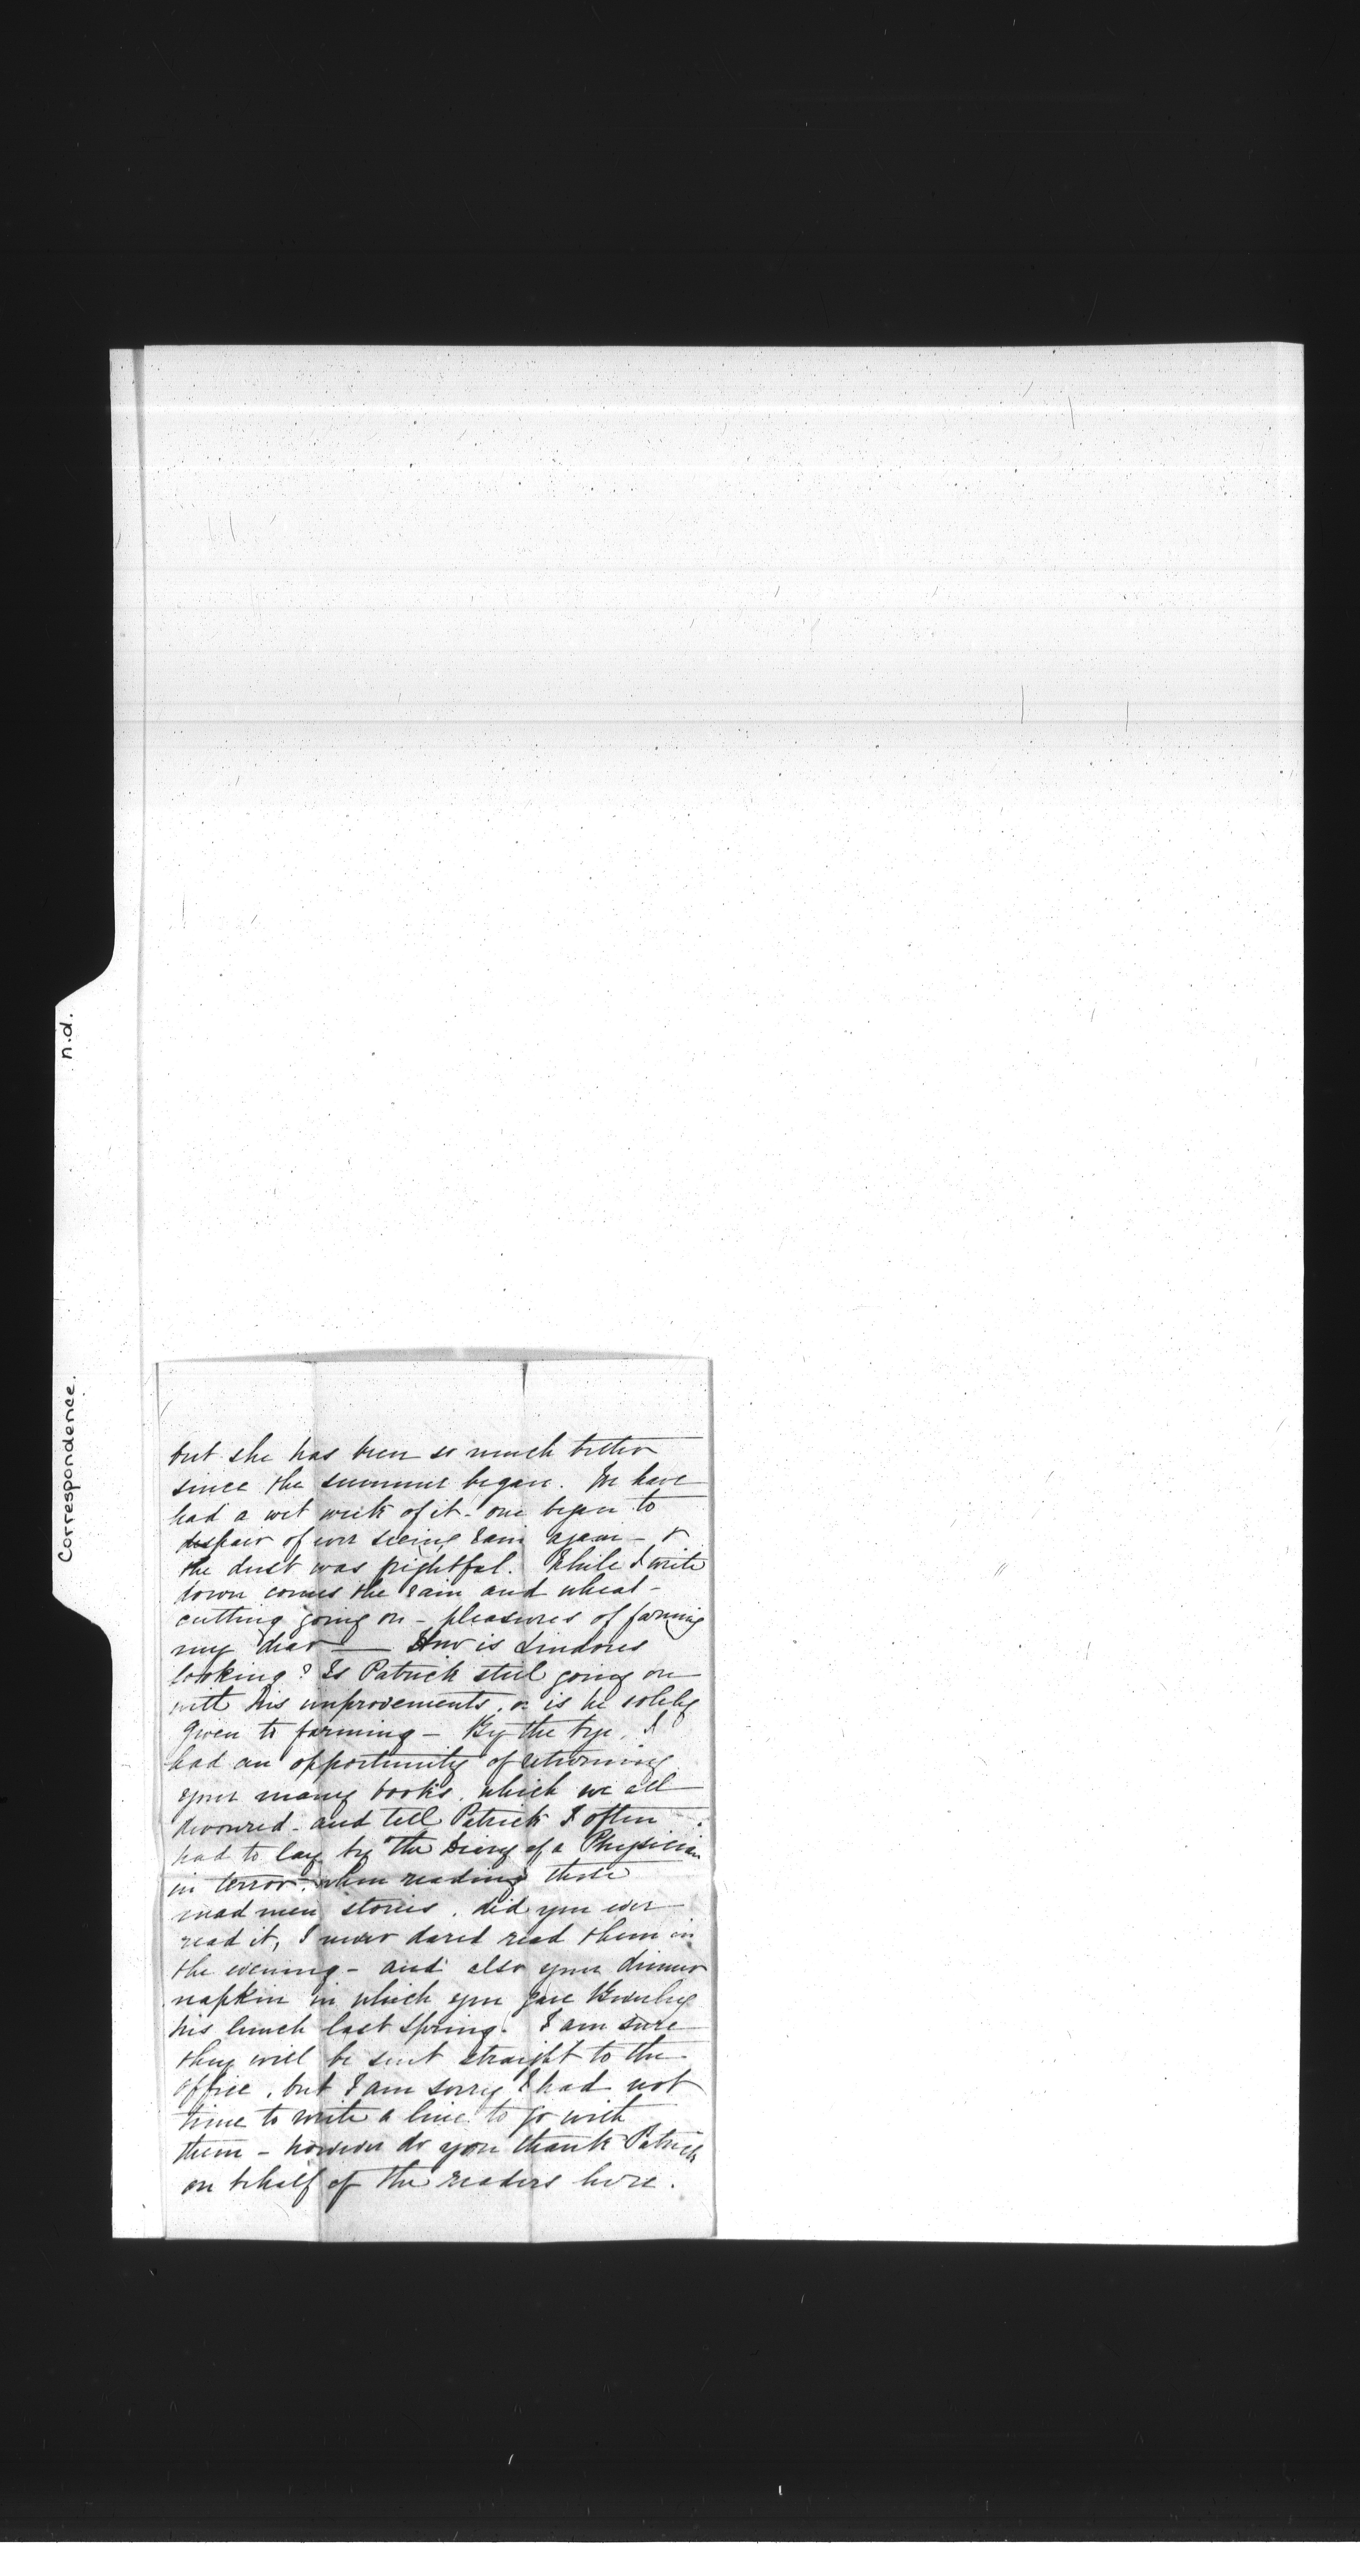 Correspondence. n.d.
but she has been so much better
since the summer began. We have
had a wet week of it - one began to
despair of ever seeing rain again - &
the dust was frightful. While I write
down comes the rain and wheat-
cutting going on - pleasures of farming
my dear — How is Lindores
looking? Is Patrick still going on
with his improvements, or is he wholly
given to farming - By the bye, I
had an opportunity of returning
your many books, which we all
devoured - and tell Patrick I often
had to lay by "the Diary of a Physician
in terror, when reading those
mad men stories. did you ever
read it, I never dared read them in
the evening - and also your dinner
napkin in which you gave
his lunch last Spring. I am sure
they will be sent straight to the
office, but I am sorry I had not
time to write a line to go with
them - however do you thank Patrick
on behalf of the readers here.